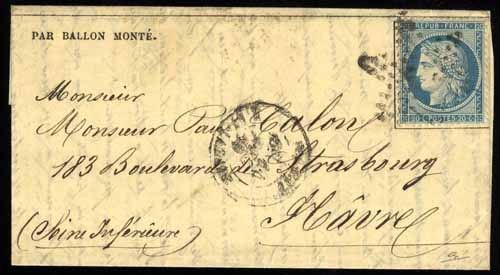 PAR BALLON MONTÉ.
REPUB. FRANC.
20 C. POSTES 20 C.
Monsieur
Monsieur Paul Calon
183 Boulevard de Strasbourg
Hâvre
(Seine Inférieure)